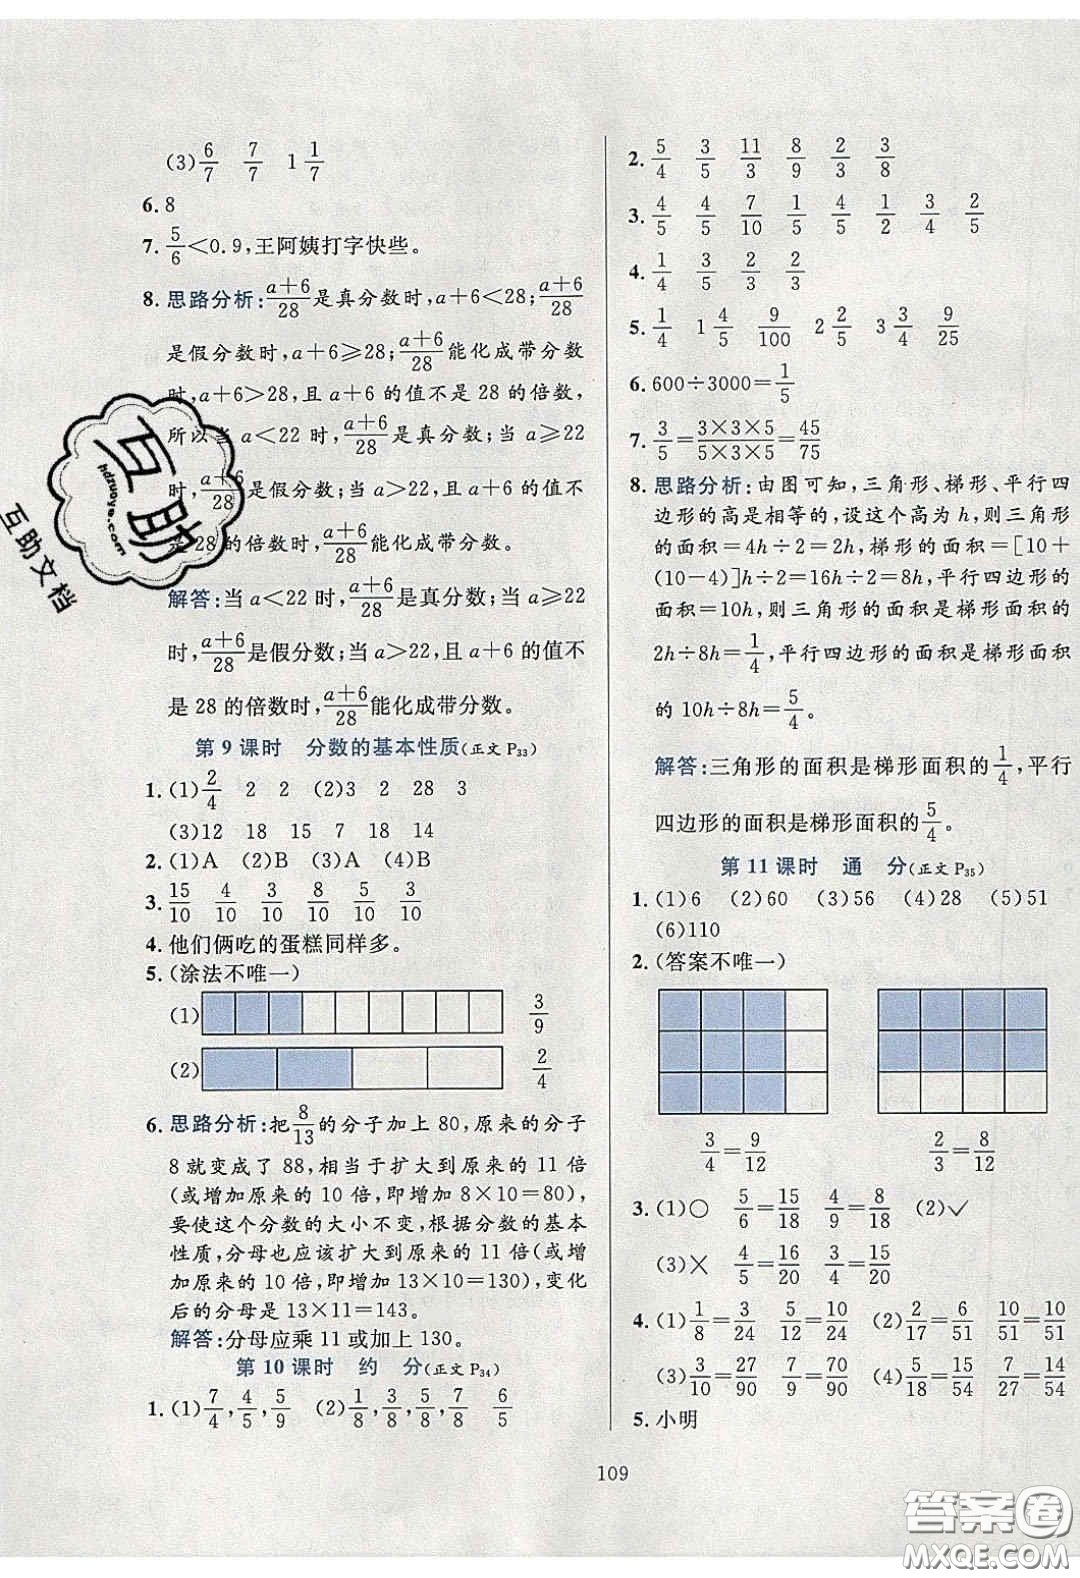 (3)6/7 7/7 1 1/7
6. 8
7. 5/6<0.9,王阿姨打字快些。
8. 思路分析:(a+6)/28是真分数时,a+6<28;(a+6)/28
是假分数时,a+6≥28;(a+6)/28能化成带分数
时,a+6>28,且 a+6 的值不是 28 的倍数,
所以当 a<22 时,(a+6)/28是真分数;当 a≥22
时,(a+6)/28是假分数;当 a>22,且 a+6 的值不
是 28 的倍数时,(a+6)/28能化成带分数。
解答:当 a<22 时,(a+6)/28是真分数;当 a≥22
时,(a+6)/28是假分数;当 a>22,且 a+6 的值不
是 28 的倍数时,(a+6)/28能化成带分数。
第 9 课时 分数的基本性质(正文 P33)
1. (1)2/4 2 2 (2)3 2 28 3
(3)12 18 15 7 18 14
2. (1)A (2)B (3)A (4)B
3. 15/10 4/10 3/10 8/10 5/10 3/10
4. 他们俩吃的蛋糕同样多。
5. (涂法不唯一)
(1) 3/9
(2) 2/4
6. 思路分析:把8/13的分子加上 80,原来的分子
8 就变成了 88,相当于扩大到原来的 11 倍
(或增加原来的 10 倍,即增加 8×10=80),
要使这个分数的大小不变,根据分数的基本
性质,分母也应该扩大到原来的 11 倍(或增
加原来的 10 倍,即增加 13×10=130),变化
后的分母是 13×11=143。
解答:分母应乘 11 或加上 130。
第 10 课时 约 分(正文 P34)
1. (1)7/4,4/5,5/9 (2)1/8,3/8,5/8,7/8 6/5
2. 5/4 3/5 11/3 8/9 2/3 3/8
3. 4/5 4/5 7/10 1/5 4/5 1/2 3/4 2/5
4. 1/4 3/5 2/3 2/3
5. 1/4 1 4/5 9/100 2 2/5 3 3/4 9/25
6. 600÷3000=1/5
7. 3/5=3×3×5/5×3×5=45/75
8. 思路分析:由图可知,三角形、梯形、平行四
边形的高是相等的,设这个高为 h,则三角形
的面积=4h÷2=2h,梯形的面积=[10+
(10-4)]h÷2=16h÷2=8h,平行四边形的
面积=10h,则三角形的面积是梯形面积的
2h÷8h=1/4,平行四边形的面积是梯形面积
的 10h÷8h=5/4。
解答:三角形的面积是梯形面积的1/4,平行
四边形的面积是梯形面积的5/4。
第 11 课时 通 分(正文 P35)
1. (1)6 (2)60 (3)56 (4)28 (5)51
(6)110
2. (答案不唯一)
3/4=9/12 2/3=8/12
3. (1)○ 5/6=15/18 4/9=8/18 (2)✓
(3)× 4/5=16/20 3/4=15/20
4. (1)1/8=3/24 5/12=10/24 (2)2/17=6/51 10/51=10/51
(3)3/10=27/90 7/90=7/90 (4)5/18=15/54 7/27=14/54
5. 小明
109
互助
hdzuoye.com
互助文档
答案圈
MXQE.COM